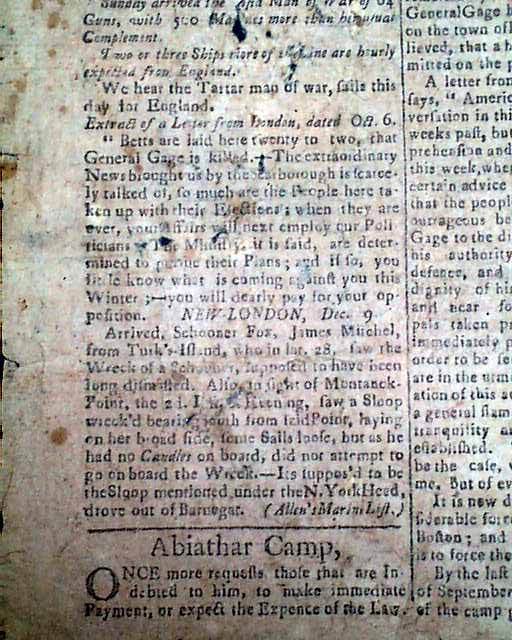 Sunday arrived the Man of War of 64
Guns, with 500 Marines more than her usual
Complement.
Two or three Ships more of the Line are hourly
expected from England.
We hear the Tartar man of war, sails this
day for England.
Extract of a Letter from London, dated Oct. 6.
" Betts are laid here twenty to two, that
General Gage is killed.—The extraordinary
News brought us by the Scarborough is scarce-
ly talked of, so much are the People here ta-
ken up with their Elections; when they are
over, your Affairs will next employ our Poli-
ticians. The Ministry, it is said, are deter-
mined to pursue their Plans; and if so, you
little know what is coming against you this
Winter;—you will dearly pay for your op-
position. NEW-LONDON, Dec. 9.
Arrived, Schooner Fox, James Mitchel,
from Turk's-Island, who in lat. 28, saw the
Wreck of a Schooner, supposed to have been
long dismasted. Also, in sight of Montauck-
Point, the 2d. Evening, saw a Sloop
wreck'd bearing South from said Point, laying
on her broad side, some Sails loose, but as he
had no Candles on board, did not attempt to
go on board the Wreck.—Its suppos'd to be
the Sloop mentioned under the N. York Head,
drove out of Barnegat. (Allen's Marine List.)
Abiathar Camp,
ONCE more requests those that are In-
debted to him, to make immediate
Payment, or expect the Expence of the Law.
General Gage
on the town of
lieved, that a
mitted on the
A letter from
says, " Americ
versation in this
weeks past, but
prehension and
this week, when
certain advice
that the people
outrageous be
Gage to the di
his authority
defence, and
dignity of his
and near
pals taken
immediately
order to be se
are in the utmo
ation of this
a general
tranquility
established.
be the case,
me. But of ev
It is now d
siderable force
Boston; and
is to force the
By the last
of September
of the camp